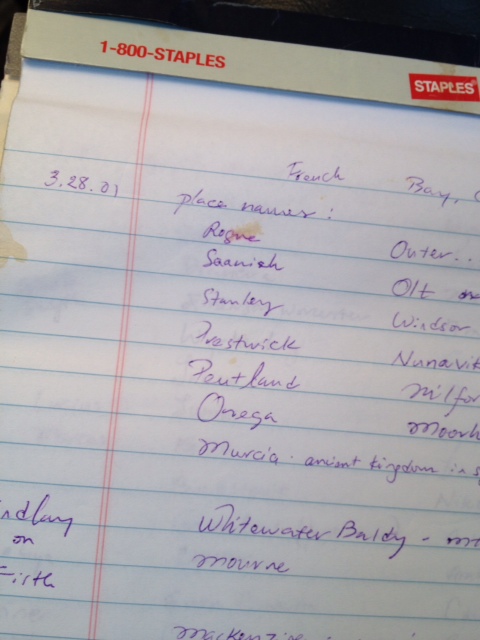 1-800-STAPLES
STAPLES
French Bay,
3.28.01 place names:
Rogue Outer..
Saanich Olt
Stanley Windsor
Prestwick Nunavik
Pentland Milfor
Onega Moorh
Murcia - ancient kingdom in s
ndlay Whitewater Baldy - m
on mourne
Firth
Mackenzie